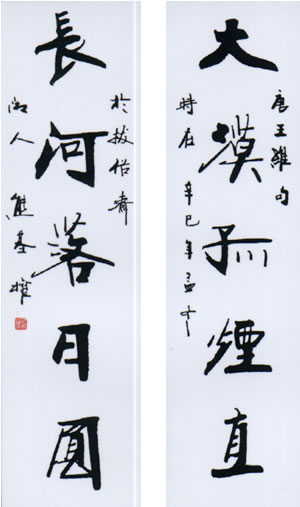 唐王維句
大漠孤煙直
時在辛巳年孟
於拔俗齋
長河落日圓
人熊基權